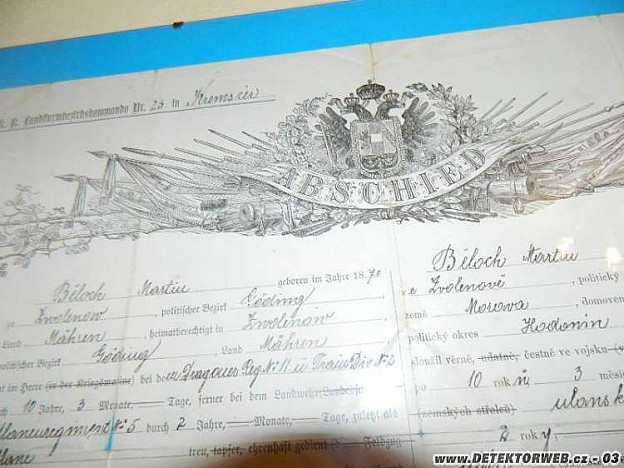 K. K. Landsturmbezirkskommando Nr. 25 in Kremsier
ABSCHIED
Běloch Martin geboren im Jahre 1870
zu Zwolenow, politischer Bezirk Göding
Land Mähren, heimatberechtigt in Zwolenow
politischer Bezirk Göding, Land Mähren
hat im Heere (in der Kriegsmarine) bei dem Dragoner Reg. N. 11 u Train Div. N. 2
durch 10 Jahre, 3 Monate, — Tage, ferner bei dem Landwehr
Ulanenregiment N. 5 durch 2 Jahre, — Monate, — Tage, zuletzt als
Ulane treu, tapfer, ehrenhaft gedient
Běloch Martin
ve Zvolenově, politický
země Morava, domoven
politický okres Hodonín
sloužil věrně, udatně, čestně ve vojsku (v
po 10 roků 3 měsíc
zemských střelců) ulansk
2 roky,
www.DETEKTORWEB.cz - 03